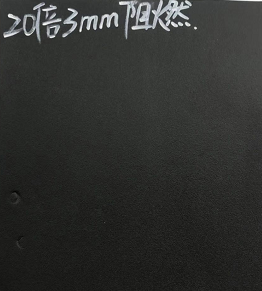 20倍3mm阻燃.